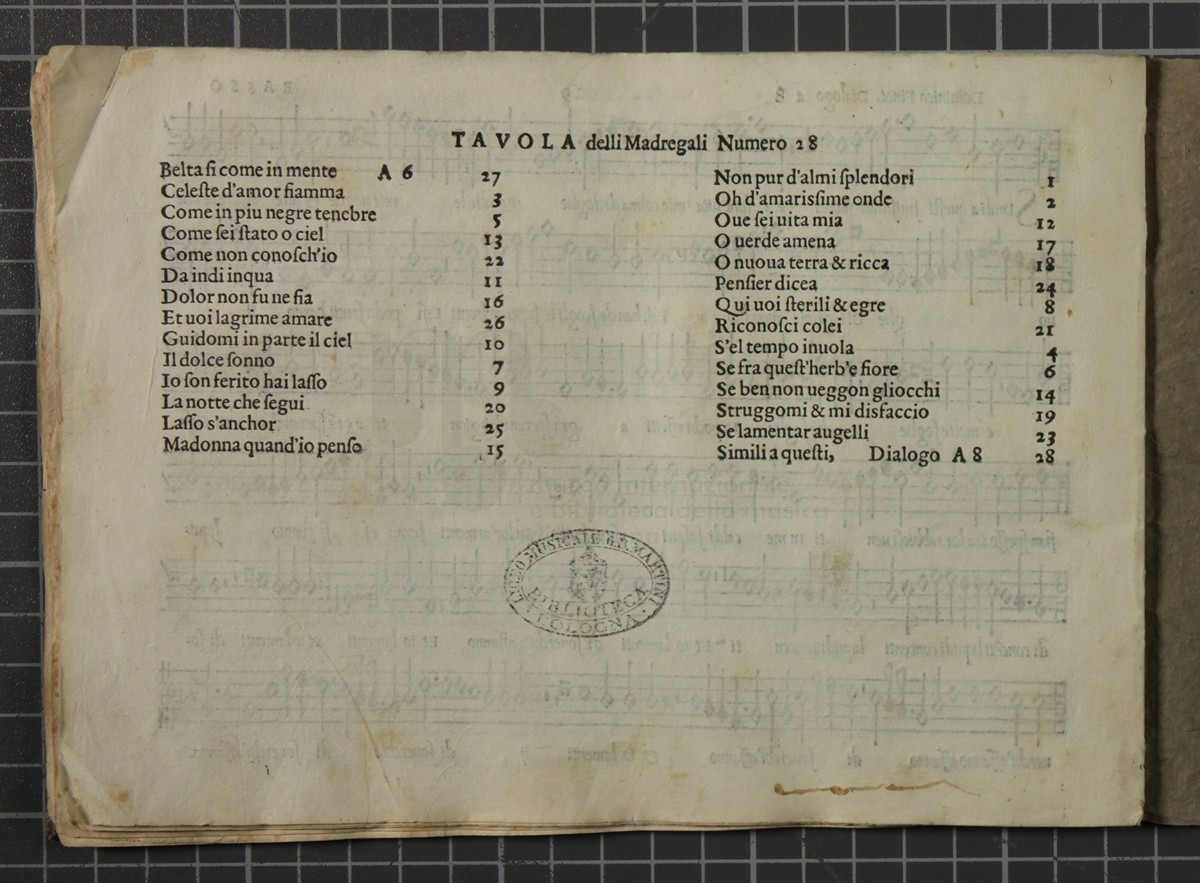 TAVOLA delli Madregali Numero 28
Belta ſi come in mente A 6 27
Celeſte d'amor fiamma 3
Come in piu negre tenebre 5
Come ſei ſtato o ciel 13
Come non conoſch'io 22
Da indi inqua 11
Dolor non fu ne fia 16
Et uoi lagrime amare 26
Guidomi in parte il ciel 10
Il dolce ſonno 7
Io ſon ferito hai laſſo 9
La notte che ſegui 20
Laſſo s'anchor 25
Madonna quand'io penſo 15
Non pur d'almi ſplendori 1
Oh d'amariſsime onde 2
Oue ſei uita mia 12
O uerde amena 17
O nuoua terra & ricca 18
Penſier dicea 24
Qui uoi ſterili & egre 8
Riconoſci colei 21
S'el tempo inuola 4
Se fra queſt'herb'e fiore 6
Se ben non ueggon gliocchi 14
Struggomi & mi disfaccio 19
Se lamentar augelli 23
Simili a queſti, Dialogo A 8 28
museo internazionale
e biblioteca della musica
LICEO MUSICALE G.B. MARTINI
BIBLIOTECA
BOLOGNA